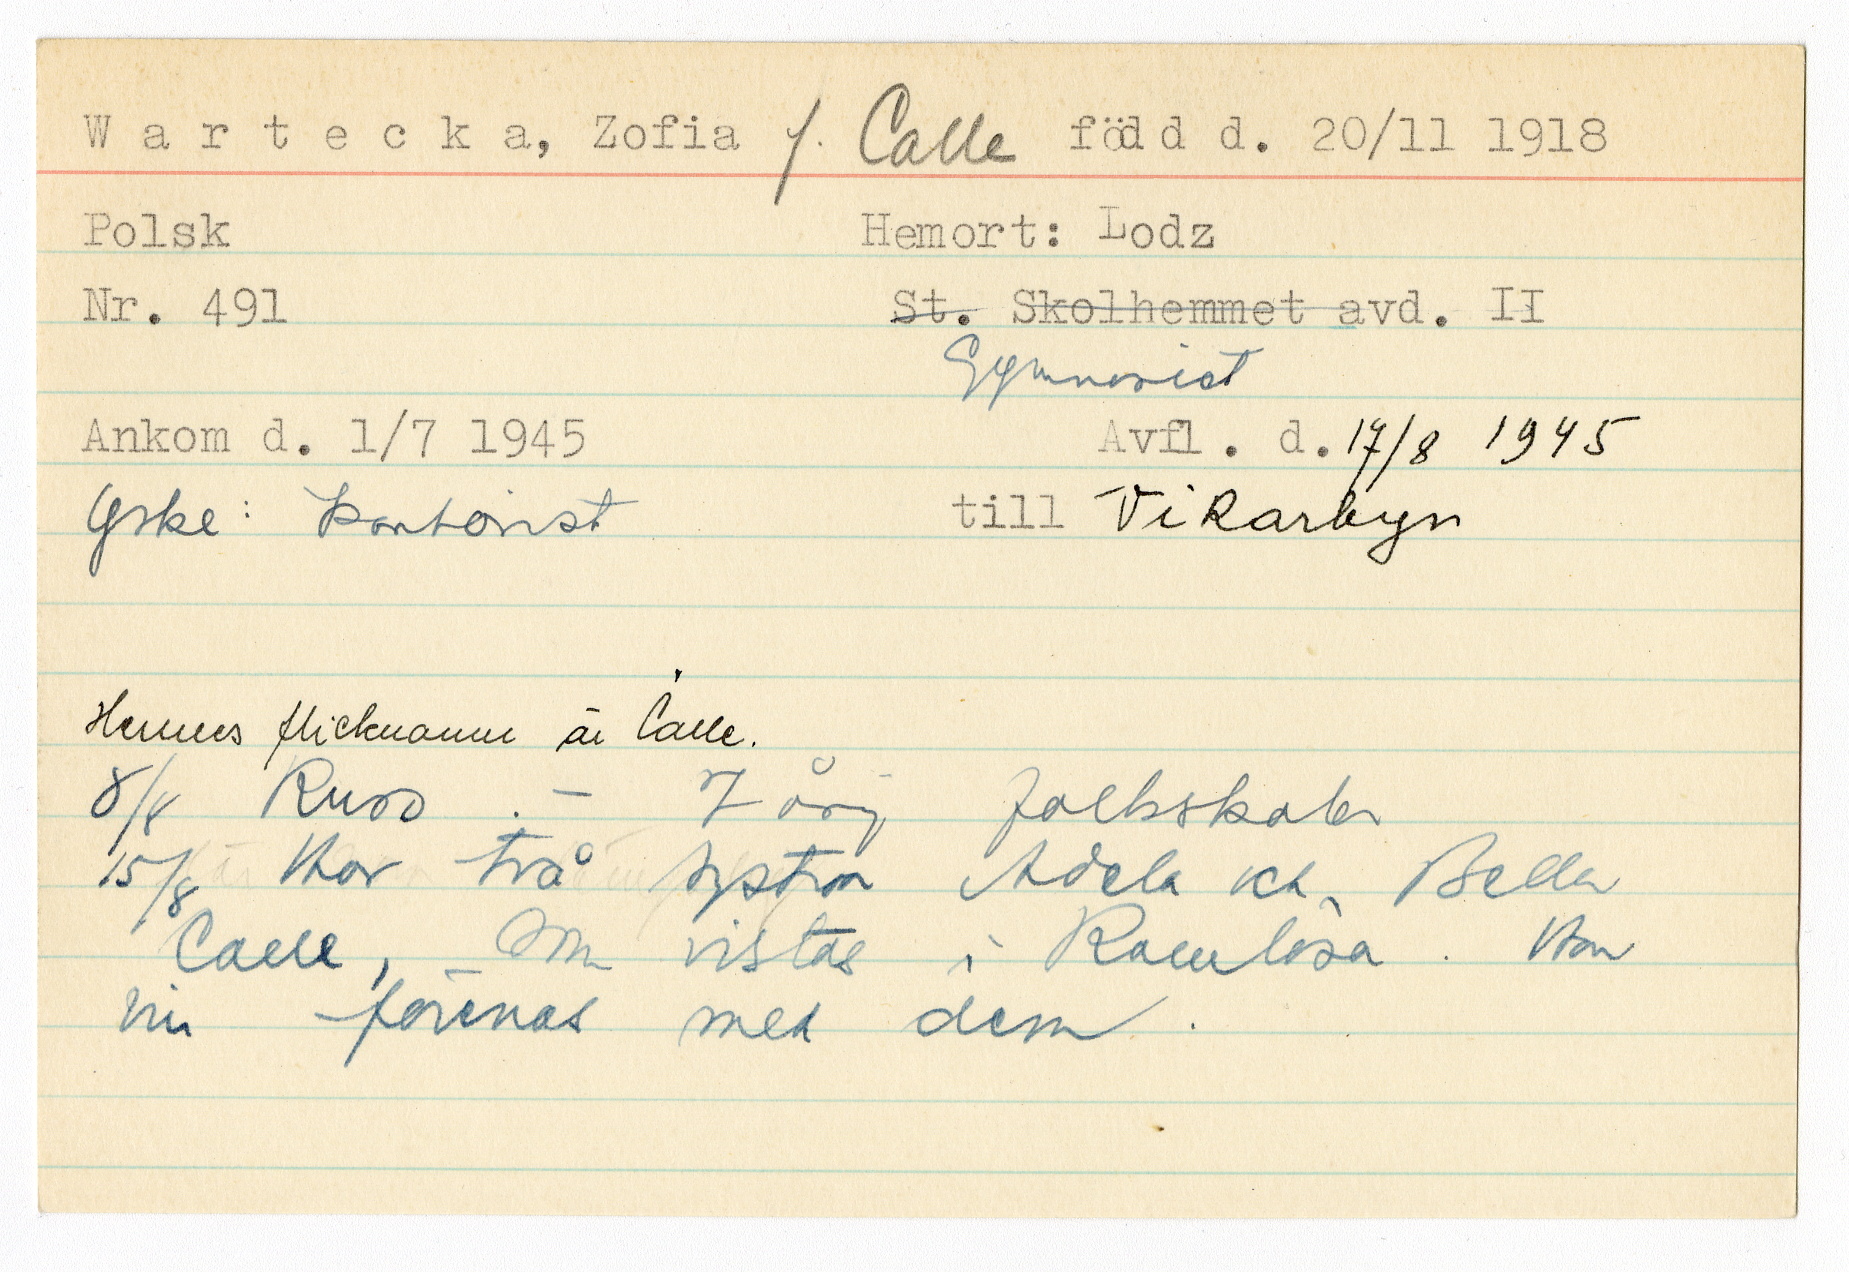 W a r t e c k a, Zofia f. Calle född d. 20/11 1918
Polsk Hemort: Lodz
Nr. 491 St. Skolhemmet avd. II
Gymnasist
Ankom d. 1/7 1945 Avfl. d. 17/8 1945
Yrke: kontorist till Vikarbyn
Hennes flicknamn är Calle.
8/8 - 7 årig folkskola
15/8 Har två systrar Adela och Bella
Calle, som vistas i Ramlösa. Hon
vill förenas med dem.